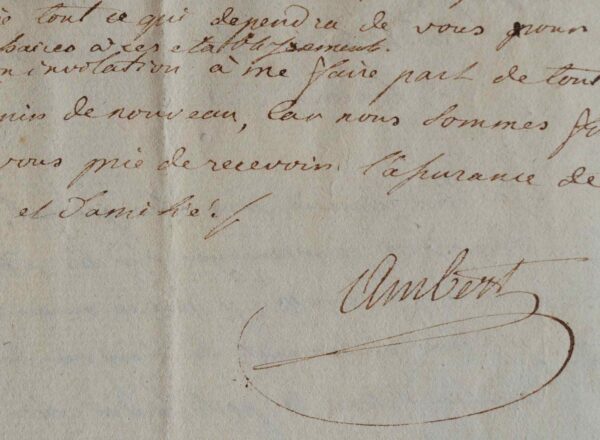 tout ce qui dependra de vous pour
à ces etablissements.
invitation à me faire part de tout
de nouveau, car nous sommes
vous prie de recevoir l'assurance de
et d'amitié.
Ambert